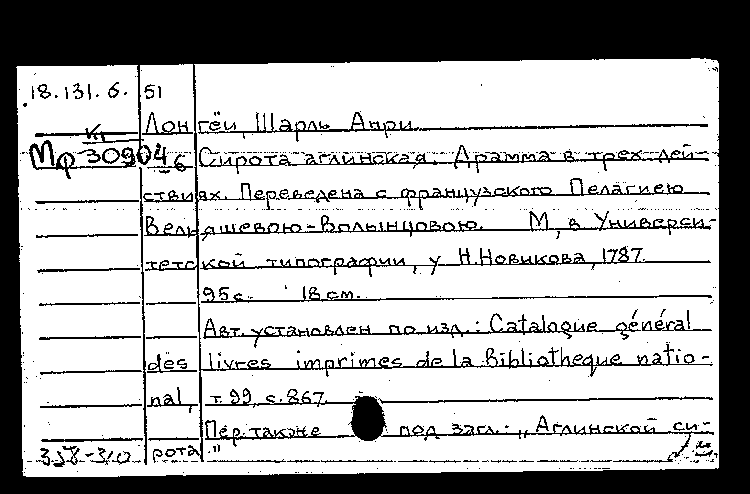 18.131.6.51
Лонгёй, Шарль Анри
К1
Мф 30904 Сирота аглинская. Драмма в трех дей-
ствиях. Переведена с французского Пелагиею
Вельяшевою-Волынцовою. М, в Универси-
тетской типографии, у Н.Новикова, 1787.
95 с. 18 см.
Авт. установлен по изд.: Catalogue général
des livres imprimes de la Bibliotheque natio-
nal, т. 99, с. 867.
Пер. также под загл.: „Аглинской си-
358-310 рота"